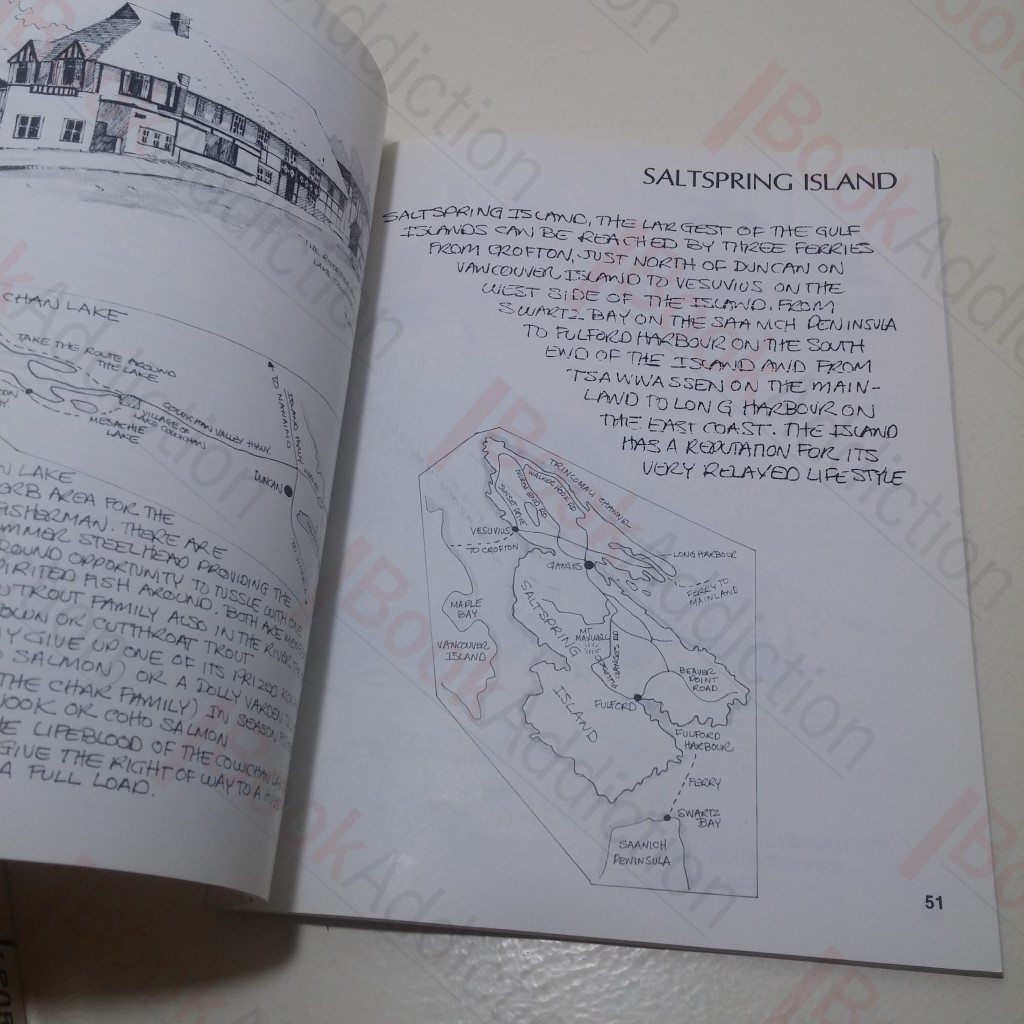 CHAN LAKE
TAKE THE ROUTE AROUND
THE LAKE
COWICHAN VALLEY HWY.
VILLAGE OF
LAKE COWICHAN
MESACHIE
LAKE
TO NANAIMO
ISLAND HWY
DUNCAN
N LAKE
ORB AREA FOR THE
FISHERMAN. THERE ARE
MMER STEELHEAD PROVIDING THE
ROUND OPPORTUNITY TO TUSSLE WITH ONE
PIRITED FISH AROUND. BOTH ARE
TROUT FAMILY ALSO IN THE RIVER
OWN OR CUTTHROAT TROUT
Y GIVE UP ONE OF ITS PRIZED
SALMON) OR A DOLLY VARDEN
THE CHAR FAMILY) IN SEASON
NOOK OR COHO SALMON
E LIFEBLOOD OF THE COWICHAN
GIVE THE RIGHT OF WAY TO A
A FULL LOAD.
SALTSPRING ISLAND
SALTSPRING ISLAND, THE LARGEST OF THE GULF
ISLANDS CAN BE REACHED BY THREE FERRIES
FROM CROFTON, JUST NORTH OF DUNCAN ON
VANCOUVER ISLAND TO VESUVIUS ON THE
WEST SIDE OF THE ISLAND, FROM
SWARTZ BAY ON THE SAANICH PENINSULA
TO FULFORD HARBOUR ON THE SOUTH
END OF THE ISLAND AND FROM
TSAWWASSEN ON THE MAIN-
LAND TO LONG HARBOUR ON
THE EAST COAST. THE ISLAND
HAS A REPUTATION FOR ITS
VERY RELAXED LIFESTYLE
TRINCOMALI CHANNEL
WALKER HOOK RD
NORTH END RD
SUNSET DRIVE
VESUVIUS
TO CROFTON
GANGES
LONG HARBOUR
FERRY TO
MAINLAND
MAPLE
BAY
VANCOUVER
ISLAND
SALTSPRING
ISLAND
MT.
MAXWELL
FULFORD GANGES RD
BEAVER
POINT
ROAD
FULFORD
FULFORD
HARBOUR
FERRY
SWARTZ
BAY
SAANICH
PENINSULA
51
IBookAddiction